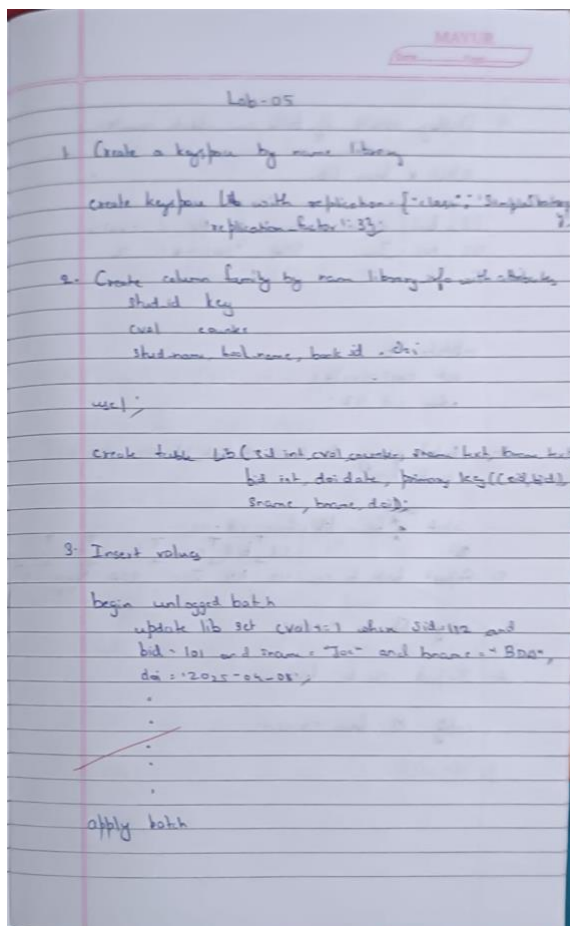 MAYUR
Lab-05
1. Create a keyspace by name library
create keyspace Lib with replication = {"class":'Simple
'replication_factor': 3};
2. Create column family by name library info with attributes
stud id key
cval counter
stud name, book name, book id
use l;
create table Lib (sid int, cval counter, sname text, bname
bid int, doi date, primary key ((sid, bid),
sname, bname, doi));
3. Insert values
begin unlogged batch
update lib set cval += 1 where sid=112 and
bid = 101 and sname = "Joe" and bname = "BDA",
doi = '2025-04-08';
apply batch